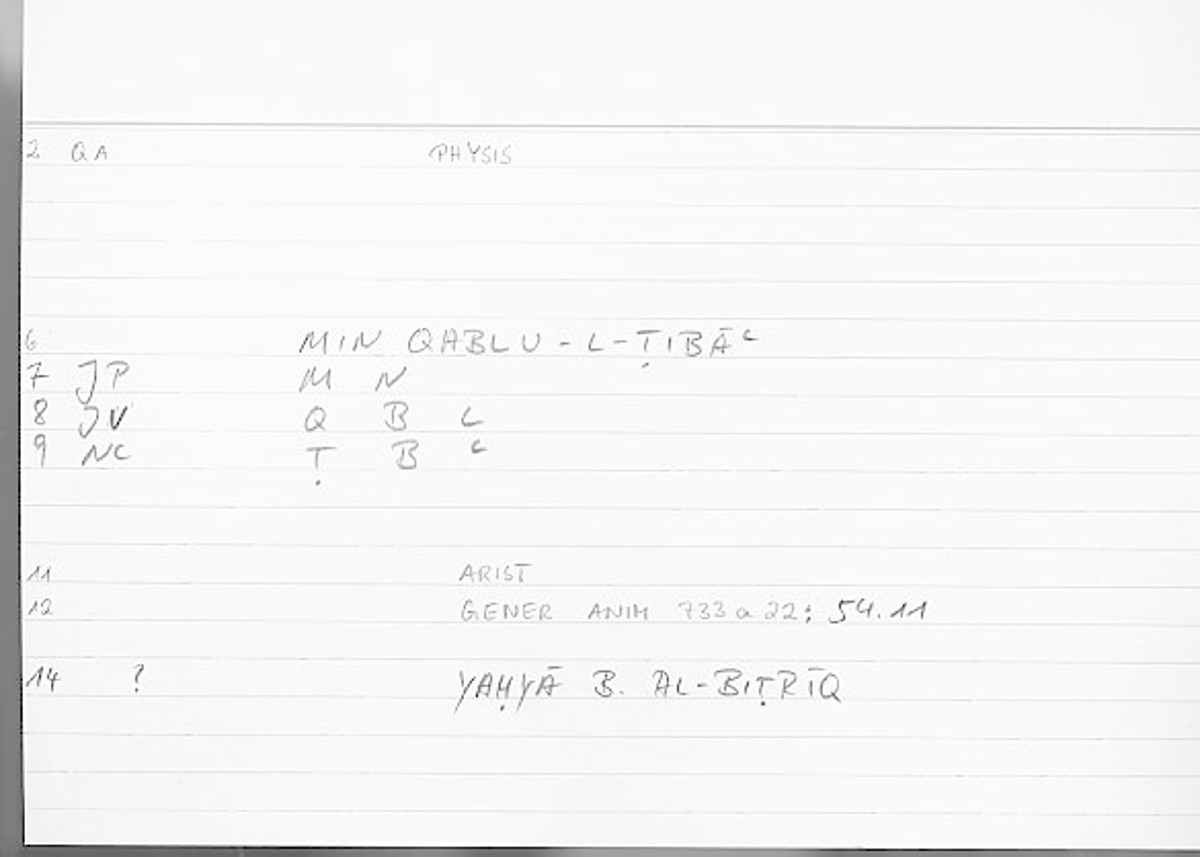 2 QA PHYSIS
6 MIN QABLU-L-ṬIBĀʿ
7 JP M N
8 JV Q B L
9 NC Ṭ B ʿ
11 ARIST
12 GENER ANIM 733 a 22; 54.11
14 ? YAḤYĀ B. AL-BIṬRĪQ